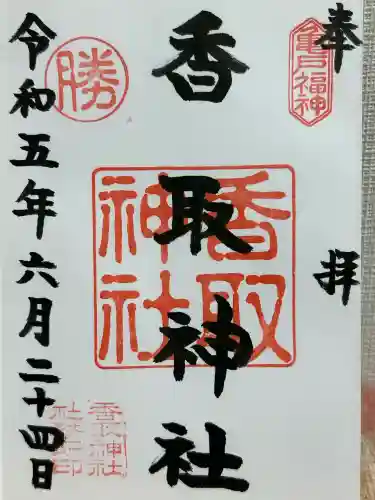 奉拝
亀戸福神
香取神社
香取神社
勝
令和五年六月二十四日
香取神社
社務所印